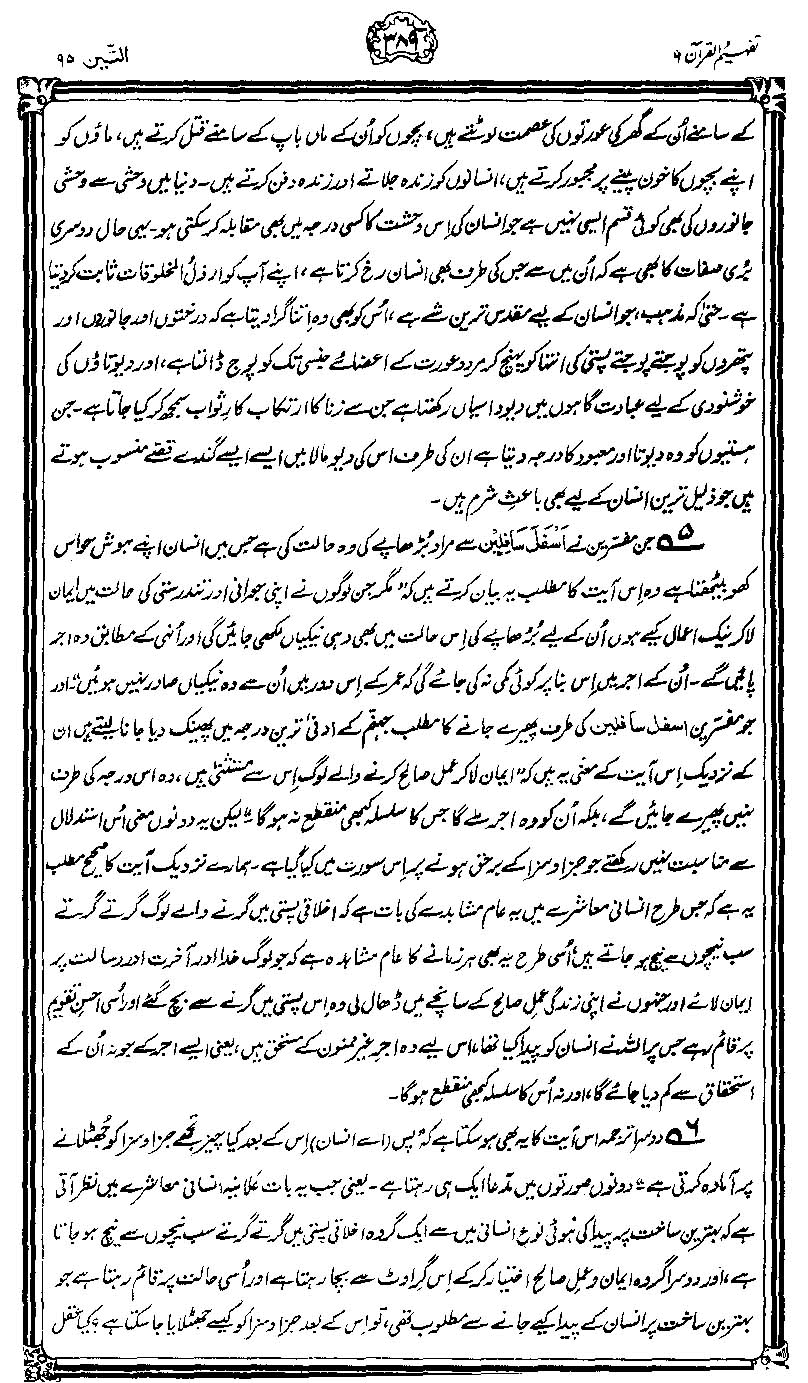 تفہیم القرآن ۶
۳۸۹
التین ۹۵
کے سامنے اُن کے گھر کی عورتوں کی عصمت لوٹتے ہیں، بچوں کو اُن کے ماں باپ کے سامنے قتل کرتے ہیں، ماؤں کو
اپنے بچوں کا خون پینے پر مجبور کرتے ہیں، انسانوں کو زندہ جلاتے اور زندہ دفن کرتے ہیں۔ دنیا میں وحشی سے وحشی
جانوروں کی بھی کوئی قسم ایسی نہیں ہے جو انسان کی اِس وحشت کا کسی درجہ میں بھی مقابلہ کر سکتی ہو۔ یہی حال دوسری
بُری صفات کا بھی ہے کہ اُن میں سے جس کی طرف بھی انسان رخ کرتا ہے، اپنے آپ کو ارذل المخلوقات ثابت کر دیتا
ہے۔ حتیٰ کہ مذہب، جو انسان کے لیے مقدس ترین شے ہے، اُس کو بھی وہ اتنا گرا دیتا ہے کہ درختوں اور جانوروں اور
پتھروں کو پوجتے پوجتے پستی کی انتہا کو پہنچ کر مرد و عورت کے اعضائے جنسی تک کو پوج ڈالتا ہے، اور دیوتاؤں کی
خوشنودی کے لیے عبادت گاہوں میں دیوداسیاں رکھتا ہے جن سے زنا کا ارتکاب کارِ ثواب سمجھ کر کیا جاتا ہے۔ جن
ہستیوں کو وہ دیوتا اور معبود کا درجہ دیتا ہے ان کی طرف اس کی دیومالا میں ایسے ایسے گندے قصے منسوب ہوتے
ہیں جو ذلیل ترین انسان کے لیے بھی باعثِ شرم ہیں۔
۵ جن مفسرین نے اَسْفَلَ سَافِلِیْن سے مراد بُڑھاپے کی وہ حالت لی ہے جس میں انسان اپنے ہوش حواس
کھو بیٹھتا ہے وہ اِس آیت کا مطلب یہ بیان کرتے ہیں کہ "مگر جن لوگوں نے اپنی جوانی اور تندرستی کی حالت میں ایمان
لا کر نیک اعمال کیے ہوں اُن کے لیے بُڑھاپے کی اِس حالت میں بھی وہی نیکیاں لکھی جائیں گی اور اُنہی کے مطابق وہ اجر
پائیں گے۔ اُن کے اجر میں اِس بنا پر کوئی کمی نہ کی جائے گی کہ عمر کے اِس دور میں اُن سے وہ نیکیاں صادر نہیں ہوئیں"۔ اور
جو مفسرین اسفل سافلین کی طرف پھیرے جانے کا مطلب جہنم کے ادنیٰ ترین درجہ میں پھینک دیا جانا لیتے ہیں ان
کے نزدیک اِس آیت کے معنی یہ ہیں کہ "ایمان لا کر عمل صالح کرنے والے لوگ اِس سے مستثنیٰ ہیں، وہ اس درجہ کی طرف
نہیں پھیرے جائیں گے، بلکہ اُن کو وہ اجر ملے گا جس کا سلسلہ کبھی منقطع نہ ہوگا"۔ لیکن یہ دونوں معنی اُس استدلال
سے مناسبت نہیں رکھتے جو جزا و سزا کے برحق ہونے پر اِس سورت میں کیا گیا ہے۔ ہمارے نزدیک آیت کا صحیح مطلب
یہ ہے کہ جس طرح انسانی معاشرے میں یہ عام مشاہدے کی بات ہے کہ اخلاقی پستی میں گرنے والے لوگ گرتے گرتے
سب نیچوں سے نیچ ہو جاتے ہیں، اُسی طرح یہ بھی ہر زمانے کا عام مشاہدہ ہے کہ جو لوگ خدا اور آخرت اور رسالت پر
ایمان لائے اور جنہوں نے اپنی زندگی عملِ صالح کے سانچے میں ڈھال لی وہ اِس پستی میں گرنے سے بچ گئے اور اُسی احسنِ تقویم
پر قائم رہے جس پر اللہ نے انسان کو پیدا کیا تھا، اس لیے وہ اجرِ غیر ممنون کے مستحق ہیں، یعنی ایسے اجر کے جو نہ اُن کے
استحقاق سے کم دیا جائے گا، اور نہ اُس کا سلسلہ کبھی منقطع ہوگا۔
۶ دوسرا ترجمہ اس آیت کا یہ بھی ہو سکتا ہے کہ "پس (اے انسان) اِس کے بعد کیا چیز تجھے جزا و سزا کو جُھٹلانے
پر آمادہ کرتی ہے"۔ دونوں صورتوں میں مدعا ایک ہی رہتا ہے۔ یعنی جب یہ بات عَلانیہ انسانی معاشرے میں نظر آتی
ہے کہ بہترین ساخت پر پیدا کی ہوئی نوعِ انسانی میں سے ایک گروہ اخلاقی پستی میں گرتے گرتے سب نیچوں سے نیچ ہو جاتا
ہے، اور دوسرا گروہ ایمان و عملِ صالح اختیار کرکے اِس گراوٹ سے بچا رہتا ہے اور اُسی حالت پر قائم رہتا ہے جو
بہترین ساخت پر انسان کے پیدا کیے جانے سے مطلوب تھی، تو اِس کے بعد جزا و سزا کو کیسے جھٹلایا جا سکتا ہے؟ کیا عقل